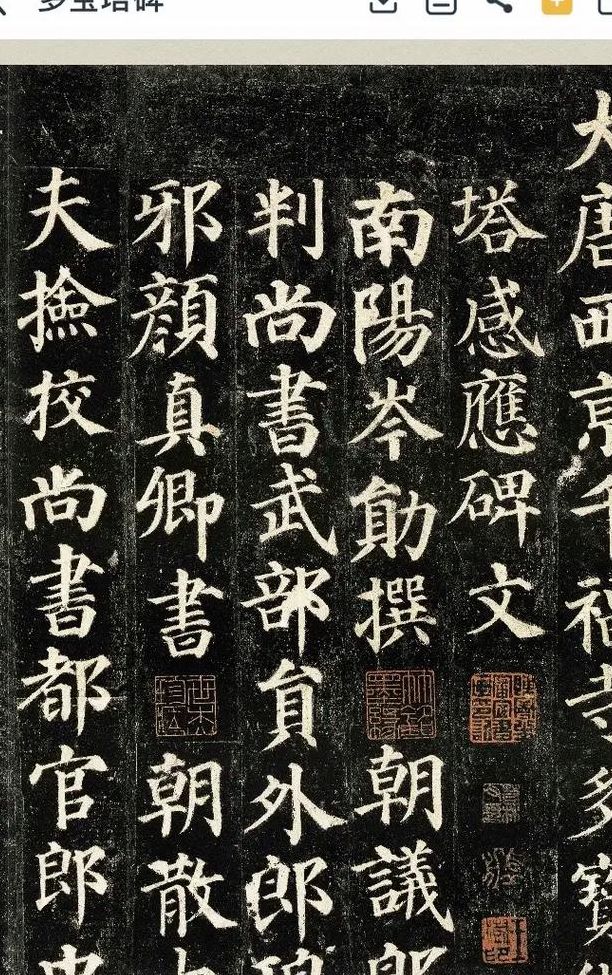 多宝塔碑
大唐西京千福寺多寶
塔感應碑文
南陽岑勛撰 朝議郎
判尚書武部員外郎琅
邪顔真卿書 朝散大
夫撿校尚書都官郎中